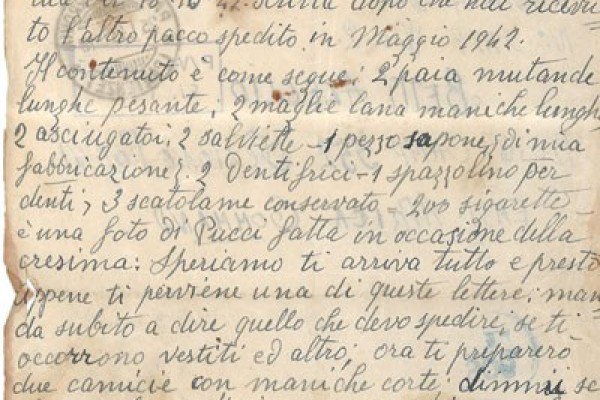 10 42. scritta dopo che hai ricevu
to l'altro pacco spedito in Maggio 1942.
Il contenuto è come segue: 2 paia mutande
lunghe pesante, 2 maglie lana maniche lunghe
2 asciugatoi, 2 salviette - 1 pezzo sapone {di mia
fabbricazione}. 2 Dentifrici - 1 spazzolino per
denti, 3 scatolame conservato - 200 sigarette -
è una foto di Pucci fatta in occasione della
cresima: Speriamo ti arriva tutto e presto
appene ti perviene una di queste lettere, man
da subito a dire quello che devo spedire, se ti
occorrono vestiti ed altro, ora ti preparerò
due camicie con maniche corte, dimmi se